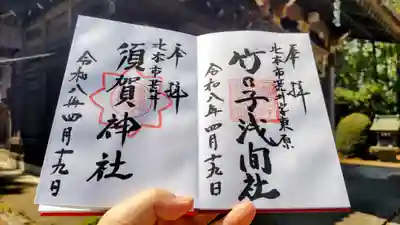 奉拝
北本市荒井
竹ノ子浅間社
令和八年四月十九日
奉拝
北本市荒井
須賀神社
令和八年四月十九日